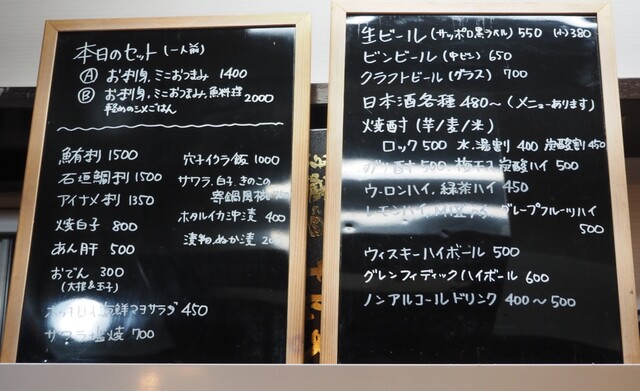 本日のセット(一人前)
Ⓐ お刺身、ミニおつまみ 1400
Ⓑ お刺身、ミニおつまみ、魚料理 2000
軽めのシメごはん
鮪刺 1500
石垣鯛刺 1500
アイナメ刺 1350
焼白子 800
あん肝 500
おでん 300
(大根&玉子)
海鮮マヨサラダ 450
サワラ塩焼 700
穴子イクラ飯 1000
サワラ、白子、きのこの
寄鍋風
ホタルイカ沖漬 400
漬物、ぬか漬
生ビール(サッポロ黒ラベル) 550 (小) 380
ビンビール(中ビン) 650
クラフトビール(グラス) 700
日本酒各種 480〜(メニューあります)
焼酎(芋/麦/米)
ロック 500 水、湯割 400 炭酸割 450
500 炭酸ハイ 500
ウーロンハイ、緑茶ハイ 450
レモンハイ、グレープフルーツハイ
500
ウィスキーハイボール 500
グレンフィディックハイボール 600
ノンアルコールドリンク 400〜500